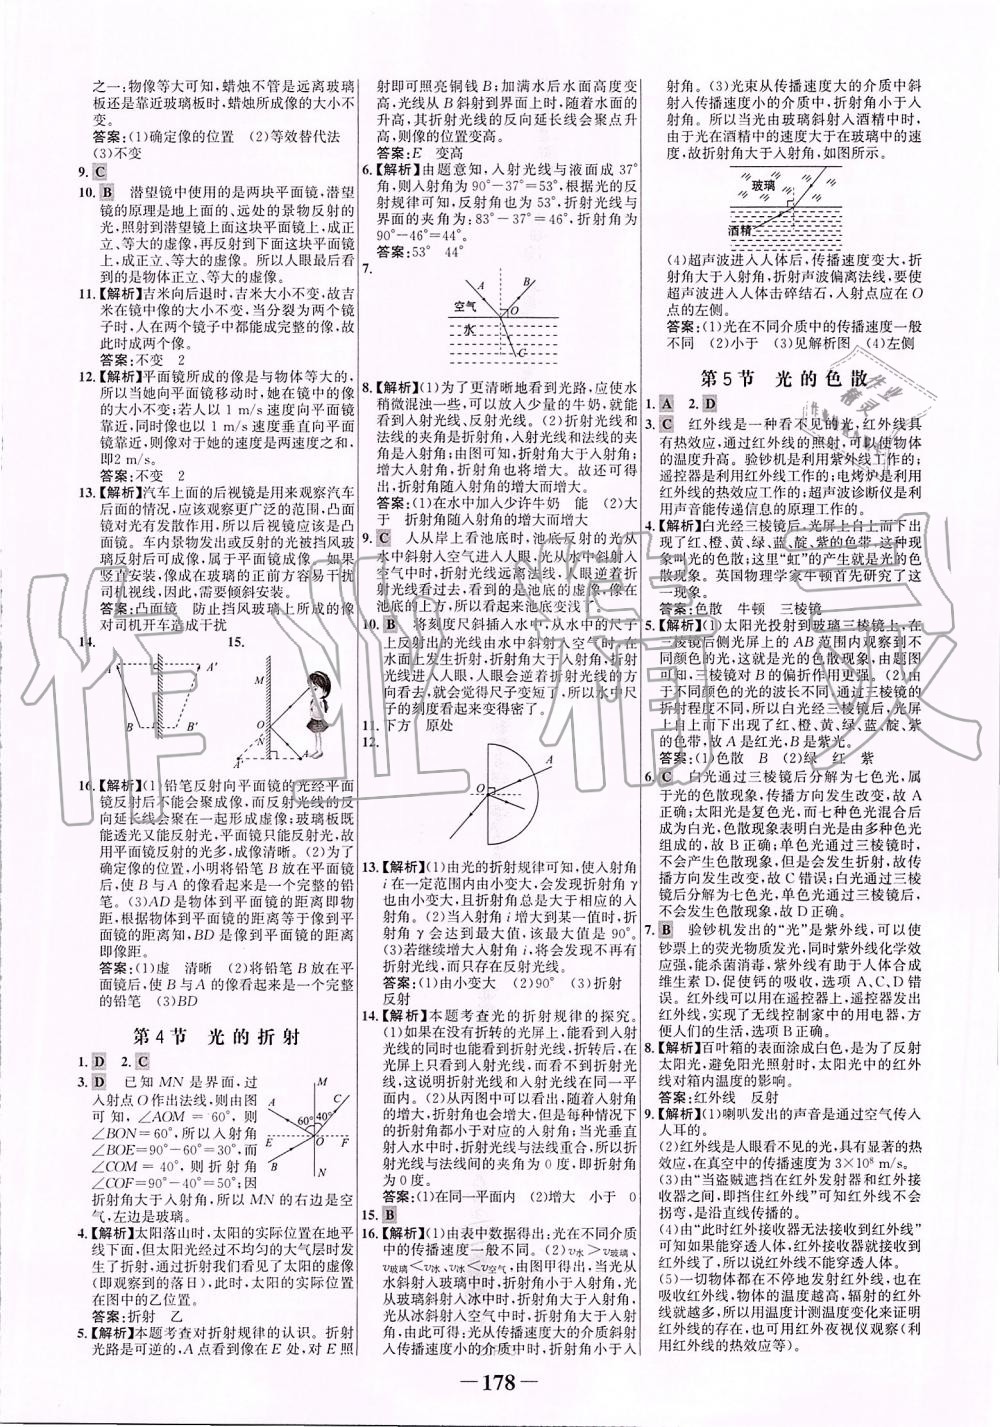 之一;物像等大可知,蜡烛不管是远离玻璃
板还是靠近玻璃板时,蜡烛所成像的大小不
变。
答案:(1)确定像的位置 (2)等效替代法
(3)不变
9. C
10. B 潜望镜中使用的是两块平面镜,潜望
镜的原理是地上面的、远处的景物反射的
光,照射到潜望镜上面这块平面镜上,成正
立、等大的虚像,再反射到下面这块平面镜
上,成正立、等大的虚像。所以人眼最后看
到的是物体正立、等大的虚像。
11.【解析】吉米向后退时,吉米大小不变,故吉
米在镜中像的大小不变,当分裂为两个镜
子时,人在两个镜子中都能成完整的像,故
此时成两个像。
答案:不变 2
12.【解析】平面镜所成的像是与物体等大的,
所以当她向平面镜移动时,她在镜中的像
大小不变;若人以 1 m/s 速度向平面镜
靠近,同时像也以 1 m/s 速度垂直向平面
镜靠近,则像对于她的速度是两速度之和,
即2 m/s。
答案:不变 2
13.【解析】汽车上面的后视镜是用来观察汽车
后面的情况,应该观察更广泛的范围,凸面
镜对光有发散作用,所以后视镜应该是凸
面镜。车内景物发出或反射的光被挡风玻
璃反射后可成像,属于平面镜成像。如果
竖直安装,像成在玻璃的正前方容易干扰
司机视线,因此,需要倾斜安装。
答案:凸面镜 防止挡风玻璃上所成的像
对司机开车造成干扰
14. 15.
A A′ B B′
M O N A
16.【解析】(1)铅笔反射向平面镜的光经平面
镜反射后不能会聚成像,而反射光线的反
向延长线会聚在一起形成虚像;玻璃板既
能透光又能反射光,平面镜只能反射光,故
用平面镜反射的光多,成像清晰。(2)为了
确定像的位置,小明将铅笔 B 放在平面镜
后,使 B 与 A 的像看起来是一个完整的铅
笔。(3)AD 是物体到平面镜的距离即物
距,根据物体到平面镜的距离等于像到平
面镜的距离可知,BD 是像到平面镜的距离
即像距。
答案:(1)虚 清晰 (2)将铅笔 B 放在平
面镜后,使 B 与 A 的像看起来是一个完整
的铅笔 (3)BD
第4节 光的折射
1. D 2. C
3. D 已知 MN 是界面,过
入射点 O 作出法线,则由图
可知,∠AOM=60°,则
∠BON=60°,所以入射角
∠BOE=90°-60°=30°,而
∠COM=40°,则折射角
∠COF=90°-40°=50°;因
折射角大于入射角,所以 MN 的右边是空
气,左边是玻璃。
M A C 60° 40° E O F B N
4.【解析】太阳落山时,太阳的实际位置在地平
线下面,但太阳光经过不均匀的大气层时发
生了折射,通过折射我们看见了太阳的虚像
(即观察到的落日),此时,太阳的实际位置
在图中的乙位置。
答案:折射 乙
5.【解析】本题考查对折射规律的认识。折射
光路是可逆的,A 点看到像在 E 处,对 E 照
射即可照亮铜钱 B;加满水后水面高度变
高,光线从 B 斜射到界面上时,随着水面的
升高,其折射光线的反向延长线会聚点升
高,则像的位置变高。
答案:E 变高
6.【解析】由题意知,入射光线与液面成 37°
角,则入射角为 90°-37°=53°,根据光的反
射规律可知,反射角也为 53°,折射光线与
界面的夹角为:83°-37°=46°,折射角为
90°-46°=44°。
答案:53° 44°
7.
A B 空气 O 水 C
8.【解析】(1)为了更清晰地看到光路,应使水
稍微混浊一些,可以加少量的牛奶,就能看
到入射光线、反射光线。(2)折射光线和
法线的夹角是折射角,入射光线和法线的夹
角是入射角;由图可知,折射角大于入射角;
增大入射角,折射角也将增大。故还可得
到:折射角随入射角的增大而增大。
答案:(1)在水中加入少许牛奶 能 (2)大
于 折射角随入射角的增大而增大
9. C 人从岸上看池底时,池底反射的光从
水中斜射入空气进入人眼,光从水中斜射入
空气中时,折射光线远离法线,人眼逆着折
射光线看去,看到的是池底的虚像,像在池
底的上方,所以看起来池水变浅了。
10. B 将刻度尺斜插入水中,从水中的尺子
上反射出的光线由水中斜射入空气时,在
水面上发生折射,折射角大于入射角,折射
光线进入人眼,人眼会逆着折射光线的方
向看去,就会觉得尺子变短了,所以水中尺
子的刻度看起来变密了。
11. 下方 原处
12.
A O
13.【解析】(1)由光的折射规律可知,使入射角
i 在一定范围内由小变大,会发现折射角 γ
也由小变大,且折射角总是大于相应的入
射角。(2)当入射角 i 增大到某一值时,折射
角 γ 会达到最大值,该最大值是 90°。
(3)若继续增大入射角 i,将会发现不再有
折射光线,而只存在反射光线。
答案:(1)由小变大 (2)90° (3)折射
反射
14.【解析】本题考查光的折射规律的探究。
(1)如果在没有折转的光屏上,能看到入射
光线对应的折射光线,折转后,在折转后的
光屏上只看到入射光线,而看不到折射光
线,这说明折射光线与入射光线和法线在同
一平面内。(2)从丙图中可以看出,折射角随
入射角的增大而增大,但是每种情况下的
折射角都小于对应的入射角;当光垂直射
入水中时,入射光线与法线重合,所以折射
光线与法线间的夹角为 0 度,即折射角
为 0 度。
答案:(1)在同一平面内 (2)增大 小于 0
15. B
16.【解析】(1)由表中数据得出:光在不同介质
中的传播速度一般不同。(2)v水>v玻璃、
v玻璃<v冰、v冰<v空气,由图甲得出,当光从
水斜射入玻璃中时,折射角小于入射角,当
光从玻璃斜射入冰中时,折射角大于入射角,
由此可得:光从传播速度大的介质斜射
入传播速度小的介质中时,折射角小于入
射角。(3)光束从传播速度大的介质中斜
射入传播速度小的介质中,折射角小于入
射角。所以当光由玻璃斜射入酒精中时,
由于光在酒精中的速度大于在玻璃中的速
度,故折射角大于入射角,如图所示。
玻璃
酒精
(4)超声波进入人体后,传播速度变大,因
此折射角大于入射角,折射声波偏离法线,要使
超声波进入人体击碎结石,入射点应在 O
点的左侧。
答案:(1)光在不同介质中的传播速度一般
不同 (2)小于 (3)见解析图 (4)左侧
第5节 光的色散
1. A 2. D
3. C 红外线是一种看不见的光,红外线具
有热效应,通过红外线的照射,可以使物体
的温度升高。验钞机是利用紫外线工作的;
遥控器是利用红外线工作的;电烤炉是利用
红外线的热效应工作的;超声波诊断仪是利
用声音能传递信息的原理工作的。
4.【解析】白光经三棱镜后,光屏上自上而下出
现了红、橙、黄、绿、蓝、靛、紫的色带,这种现
象叫光的色散;这里“虹”的产生就是光的色
散现象。英国物理学家牛顿首先研究了这
一现象。
答案:色散 牛顿 三棱镜
5.【解析】(1)太阳光投射到玻璃三棱镜上,在
三棱镜后侧光屏上的 AB 范围内观察到不
同颜色的光,这就是光的色散现象,由题图
可知,三棱镜对 B 的偏折作用更强。(2)由
于不同颜色的光的波长不同,通过三棱镜的
折射程度不同,所以白光经过三棱镜后,光屏
上自上而下出现了红、橙、黄、绿、蓝、靛、紫
的色带,故 A 是红光,B 是紫光。
答案:(1)色散 B (2)绿 红 紫
6. C 白光通过三棱镜后分解为七色光,属
于光的色散现象,传播方向发生改变,故 A
正确;太阳光是复色光,而七种色光混合后
成为白光,色散现象表明白光是由多种色光
组成的,故 B 正确;单色光通过三棱镜时,
不会产生色散现象,但是会发生折射,故传
播方向改变,故 C 错误;白光通过三棱镜后
分解为七色光,单色光通过三棱镜后,
不会发生色散现象,故 D 正确。
7. B 验钞机发出的“光”是紫外线,可以使
钞票上的荧光物质发光,同时紫外线化学效
应强,能杀菌消毒,紫外线有助于人体合成
维生素 D,促使钙的吸收,选项 A、C、D 错
误。红外线可以用在遥控器上,遥控器发出
红外线,实现了无线控制家中的用电器,方
便人们的生活,选项 B 正确。
8.【解析】百叶箱的表面涂成白色,是为了反射
太阳光,避免阳光照射,而造成太阳中的红外
线对箱内温度的影响。
答案:红外线 反射
9.【解析】(1)喇叭发出的声音是通过空气传入
人耳的。
(2)红外线是人眼看不见的光,具有显著的热
效应,在真空中的传播速度为 3×10⁸ m/s。
(3)由“当盗贼遮挡在红外发射器和红外接
收器之间,即挡住红外线”可知,红外线不会
拐弯,是沿直线传播的。
(4)由“此时红外接收器无法接收到红外线”
可知如果能穿透人体,红外线可以被接收到
红外线了,所以说红外线不能穿透人体。
(5)一切物体都在不停地发射红外线,也在
吸收红外线,物体的温度越高,辐射的红外
线就越多,所以用温度计测温度变化来证明
红外线的存在;也可以用红外夜视仪观察(利
用红外线的热效应等)。
— 178 —
作业精灵